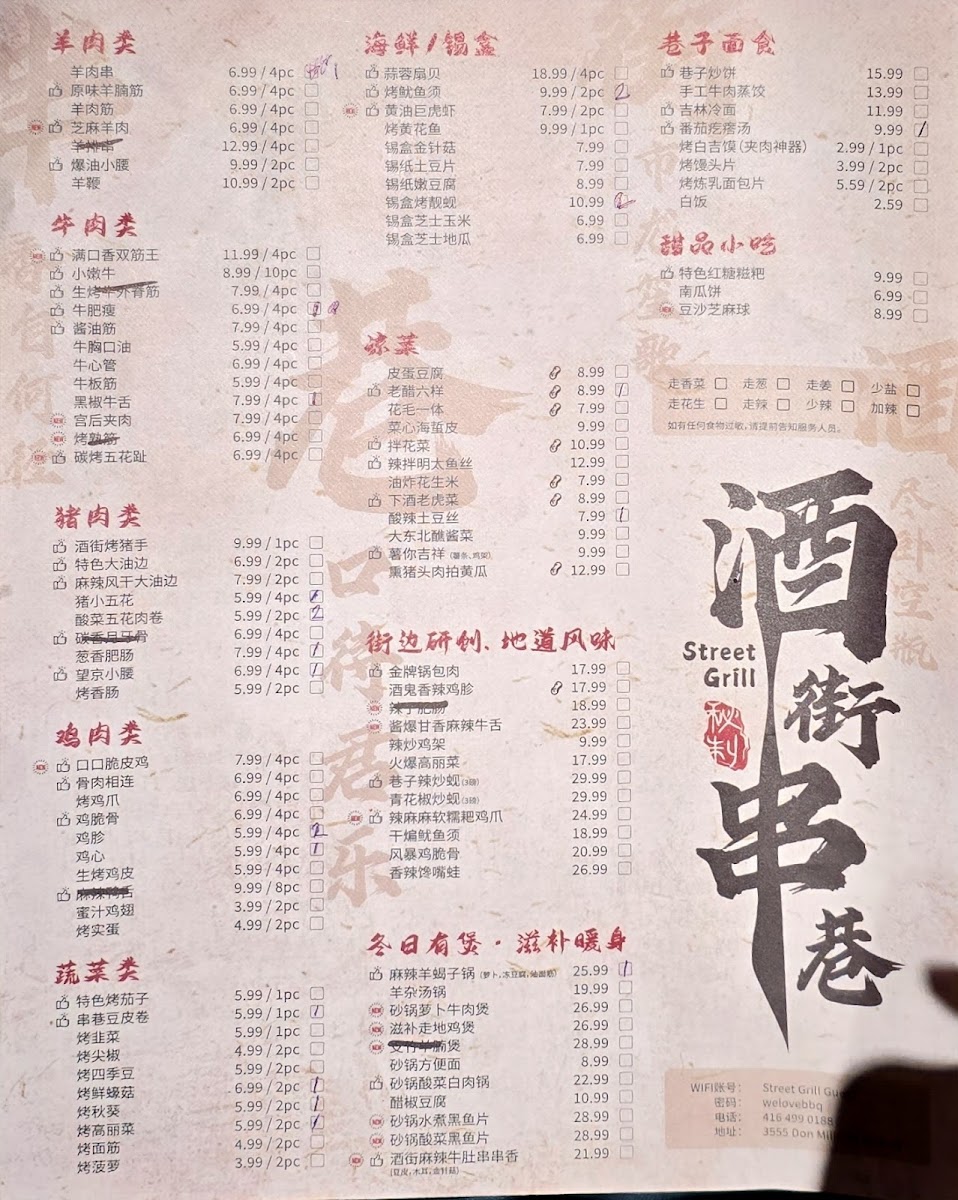 羊肉类
羊肉串 6.99 / 4pc
原味羊腩筋 6.99 / 4pc
羊肉筋 6.99 / 4pc
NEW 芝麻羊肉 6.99 / 4pc
羊排串 12.99 / 4pc
爆油小腰 9.99 / 2pc
羊鞭 10.99 / 2pc
牛肉类
NEW 满口香双筋王 11.99 / 4pc
小嫩牛 8.99 / 10pc
生烤牛外脊筋 7.99 / 4pc
牛肥瘦 6.99 / 4pc
酱油筋 7.99 / 4pc
牛胸口油 5.99 / 4pc
牛心管 6.99 / 4pc
牛板筋 5.99 / 4pc
黑椒牛舌 7.99 / 4pc
NEW 宫后夹肉 7.99 / 4pc
NEW 烤熟筋 6.99 / 4pc
NEW 碳烤五花趾 6.99 / 4pc
猪肉类
酒街烤猪手 9.99 / 1pc
特色大油边 6.99 / 2pc
麻辣风干大油边 7.99 / 2pc
猪小五花 5.99 / 4pc
酸菜五花肉卷 5.99 / 2pc 2
碳香月牙骨 6.99 / 4pc
葱香肥肠 7.99 / 4pc
望京小腰 6.99 / 4pc
烤香肠 5.99 / 2pc
鸡肉类
NEW 口口脆皮鸡 7.99 / 4pc
骨肉相连 6.99 / 4pc
烤鸡爪 6.99 / 4pc
鸡脆骨 6.99 / 4pc
鸡胗 5.99 / 4pc 2
鸡心 5.99 / 4pc 1
生烤鸡皮 5.99 / 4pc
麻辣鸭舌 9.99 / 8pc
蜜汁鸡翅 3.99 / 2pc
烤实蛋 4.99 / 2pc
蔬菜类
特色烤茄子 5.99 / 1pc
串巷豆皮卷 5.99 / 1pc
烤韭菜 5.99 / 1pc
烤尖椒 4.99 / 2pc
烤四季豆 5.99 / 2pc
烤鲜蠔菇 6.99 / 2pc
烤秋葵 5.99 / 2pc
烤高丽菜 5.99 / 2pc
烤面筋 4.99 / 2pc
烤菠萝 3.99 / 2pc
海鲜/锡盒
蒜蓉扇贝 18.99 / 4pc
烤鱿鱼须 9.99 / 2pc 2
NEW 黄油巨虎虾 7.99 / 2pc
烤黄花鱼 9.99 / 1pc
锡盒金针菇 7.99
锡纸土豆片 7.99
锡纸嫩豆腐 8.99
锡盒烤靓蚬 10.99 2
锡盒芝士玉米 6.99
锡盒芝士地瓜 6.99
凉菜
皮蛋豆腐 8.99
老醋六样 8.99
花毛一体 7.99
菜心海蜇皮 9.99
拌花菜 10.99
辣拌明太鱼丝 12.99
油炸花生米 7.99
下酒老虎菜 8.99
酸辣土豆丝 7.99
大东北蘸酱菜 9.99
薯你吉祥 (薯条、鸡架) 9.99
熏猪头肉拍黄瓜 12.99
街边研创、地道风味
金牌锅包肉 17.99
酒鬼香辣鸡胗 17.99
NEW 辣子肥肠 18.99
NEW 酱爆甘香麻辣牛舌 23.99
辣炒鸡架 9.99
火爆高丽菜 17.99
巷子辣炒蚬(3磅) 29.99
青花椒炒蚬(3磅) 29.99
NEW 辣麻麻软糯耙鸡爪 24.99
干煸鱿鱼须 18.99
风暴鸡脆骨 20.99
香辣馋嘴蛙 26.99
冬日有煲·滋补暖身
麻辣羊蝎子锅 25.99
羊杂汤锅 19.99
NEW 砂锅萝卜牛肉煲 26.99
NEW 滋补走地鸡煲 26.99
NEW 支竹羊腩煲 28.99
砂锅方便面 8.99
砂锅酸菜白肉锅 22.99
醋椒豆腐 10.99
NEW 砂锅水煮黑鱼片 28.99
NEW 砂锅酸菜黑鱼片 28.99
NEW 酒街麻辣牛肚串串香 21.99
(豆皮,木耳,金针菇)
巷子面食
巷子炒饼 15.99
手工牛肉蒸饺 13.99
吉林冷面 11.99
番茄疙瘩汤 9.99
烤白吉馍(夹肉神器) 2.99 / 1pc
烤馒头片 3.99 / 2pc
烤炼乳面包片 5.59 / 2pc
白饭 2.59
甜品小吃
特色红糖糍粑 9.99
南瓜饼 6.99
NEW 豆沙芝麻球 8.99
走香菜 走葱 走姜 少盐
走花生 走辣 少辣 加辣
如有任何食物过敏,请提前告知服务人员。
酒街串巷
Street
Grill
秘制
巷口待君乐
WIFI账号: Street Grill
密码: welovebbq
电话: 416 499 0188
地址: 3555 Don